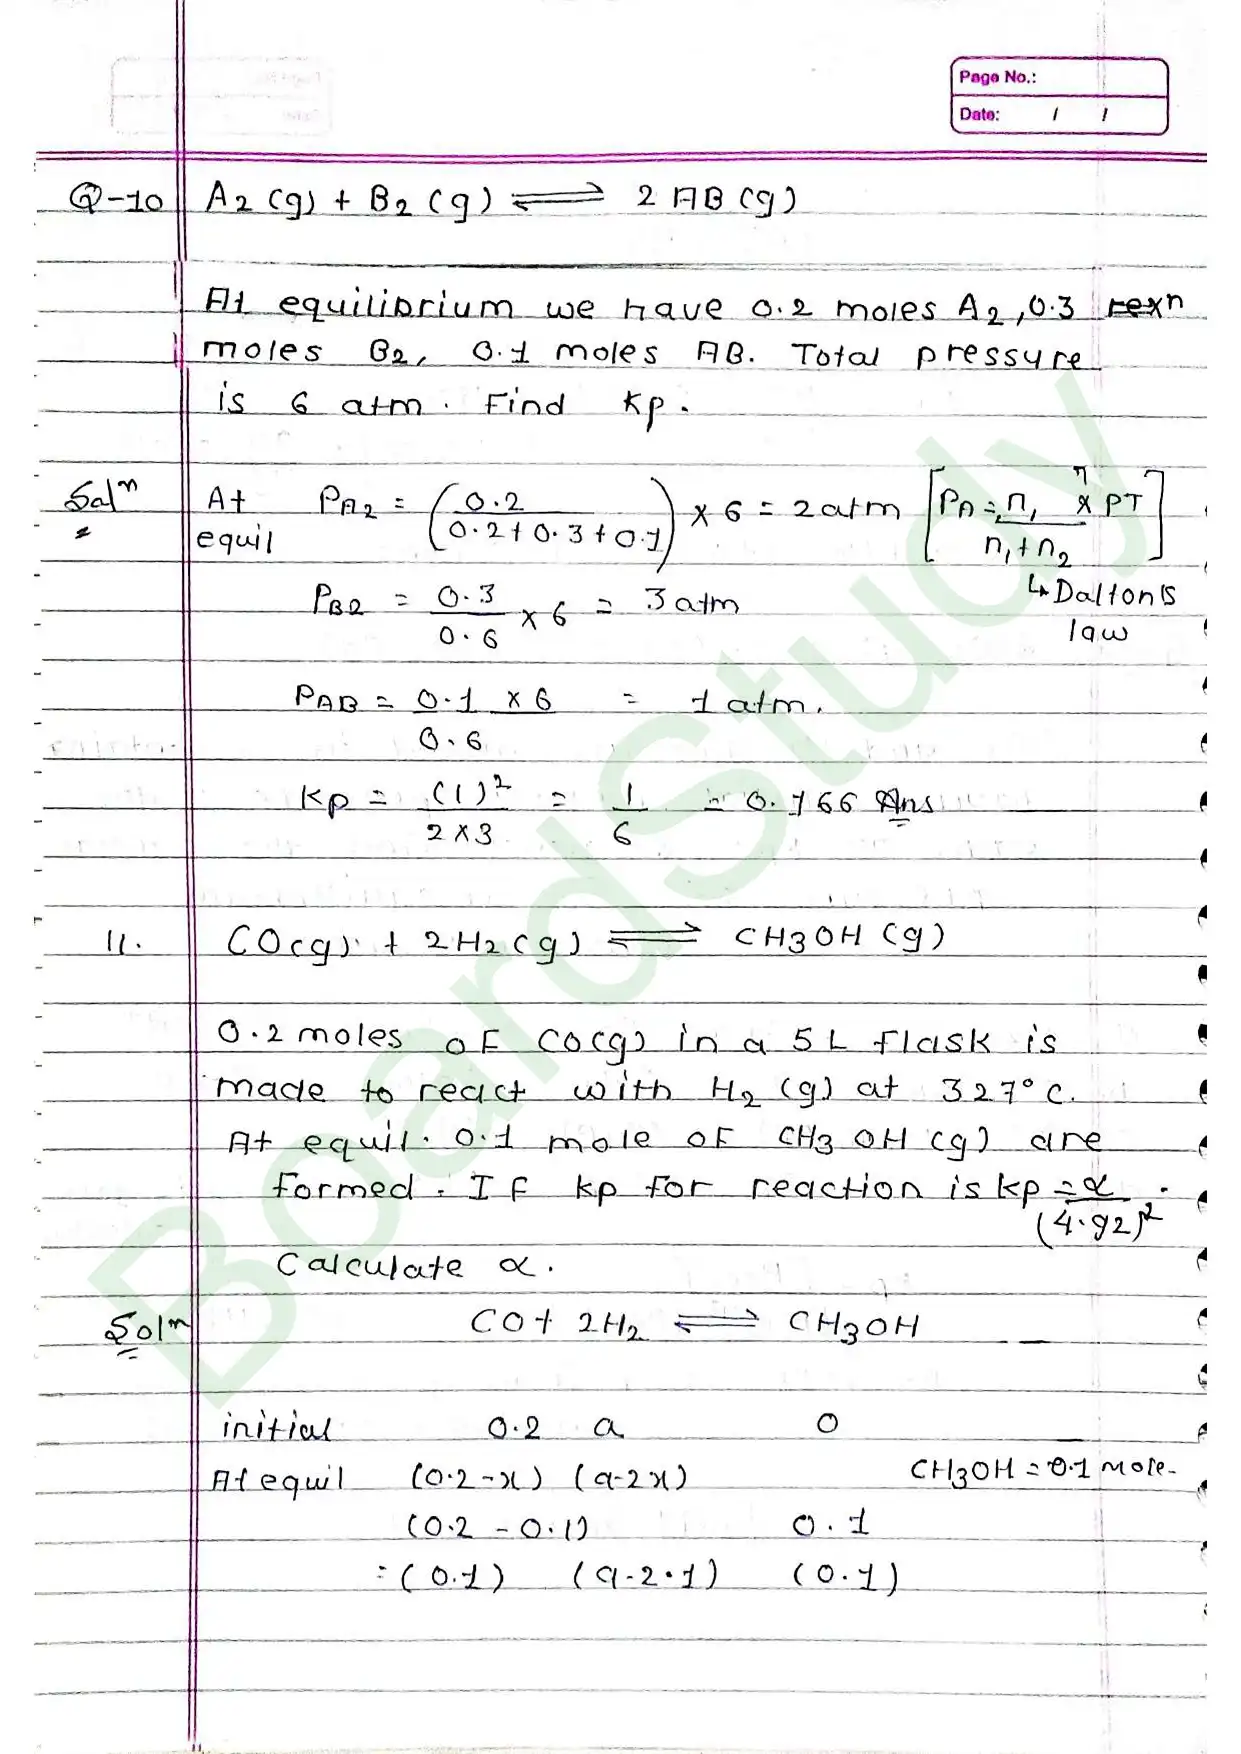 Page No.:
Date: / /
Q-10 A2 (g) + B2 (g) ⇌ 2 AB (g)
At equilibrium we have 0.2 moles A2, 0.3 rexn
moles B2, 0.1 moles AB. Total pressure
is 6 atm. Find Kp.
Solⁿ At equil PA2 = (0.2 / 0.2 + 0.3 + 0.1) × 6 = 2 atm [PA = n1 / n1 + n2 × PT]
↳ Dalton's law
PB2 = 0.3 / 0.6 × 6 = 3 atm
PAB = 0.1 × 6 / 0.6 = 1 atm.
Kp = (1)² / 2×3 = 1 / 6 = 0.166 Ans
11. CO(g) + 2H2(g) ⇌ CH3OH (g)
0.2 moles of CO(g) in a 5 L flask is
made to react with H2 (g) at 327°C.
At equil. 0.1 mole of CH3OH (g) are
formed. If Kp for reaction is Kp = α / (4.92)².
Calculate α.
Solⁿ CO + 2H2 ⇌ CH3OH
initial 0.2 a 0
At equil (0.2-x) (a-2x) CH3OH = 0.1 mole.
(0.2 - 0.1) 0.1
= (0.1) (a-2.1) (0.1)
BoardStudy